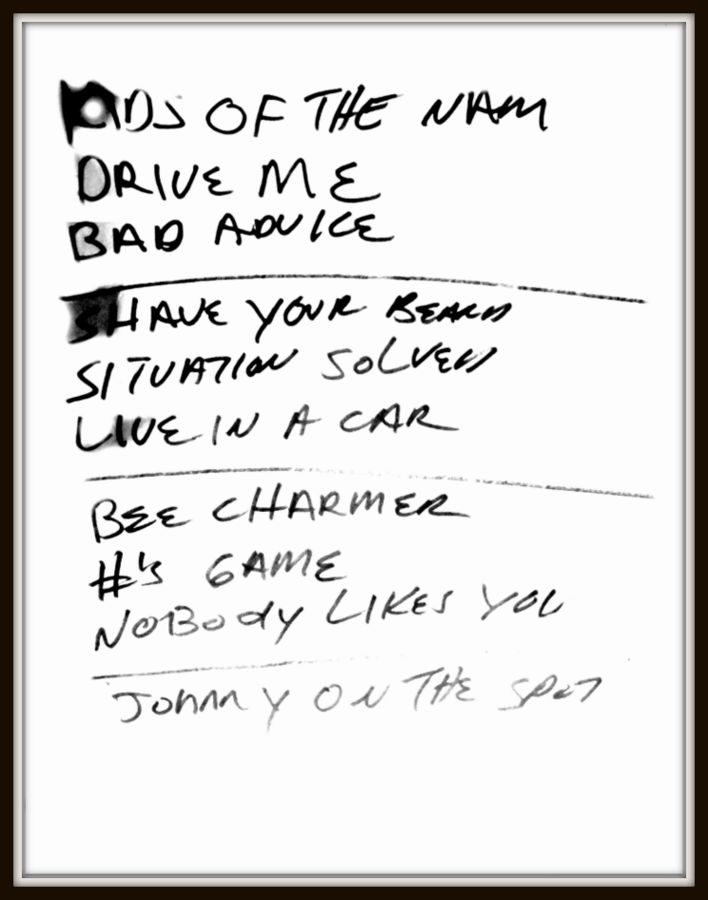 KIDS OF THE NAM
DRIVE ME
BAD ADVICE
SHAVE YOUR BEARD
SITUATION SOLVED
LIVE IN A CAR
BEE CHARMER
#'s GAME
NOBODY LIKES YOU
JOHNNY ON THE SPOT